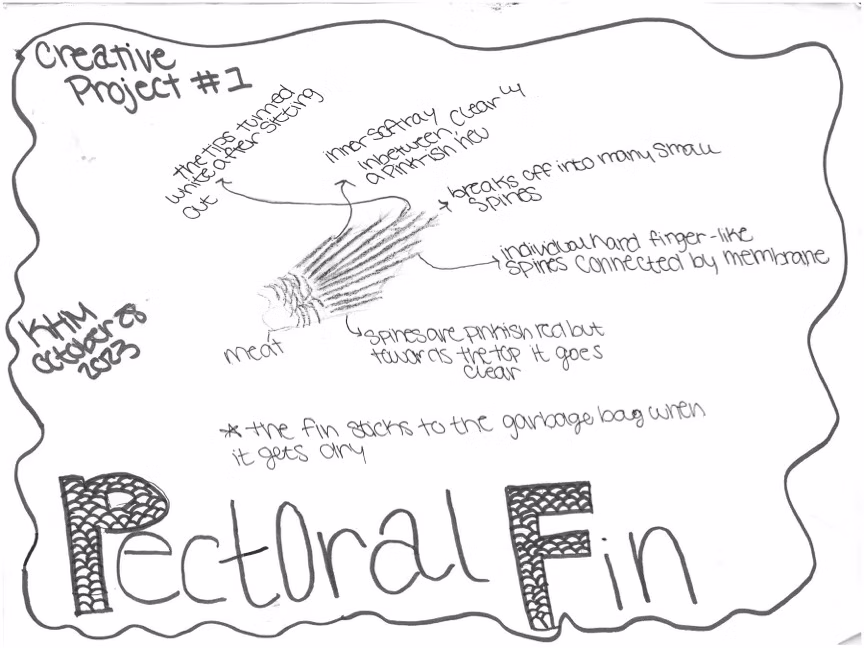 Creative
Project #1
the tips turned
white after sitting
out
inner soft ray
inbetween clear w
a pinkish heu
breaks off into many small
spines
individual hard finger-like
spines connected by membrane
KHM
October 28
2023
meat
spines are pinkish red but
towards the top it goes
clear
* the fin sticks to the garbage bag when
it gets dry
Pectoral Fin